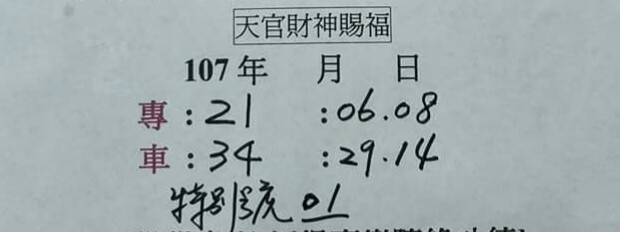 天官財神賜福
107年 月 日
專：21 ：06.08
車：34 ：29.14
特別號 01